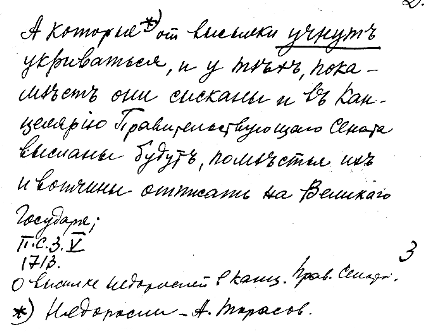 А которые *) от высылки учнутъ
укрываться, и у тѣхъ, пока-
мѣстъ они сысканы и въ Кан-
целярію Правительствующаго Сената
высланы будутъ, помѣстья ихъ
и вотчины отписать на Великаго
Государя;
П.С.З. V
1713.
3
О высылке недорослей в канц. Прав. Сената.
*) Недоросли – А. Тарасов.